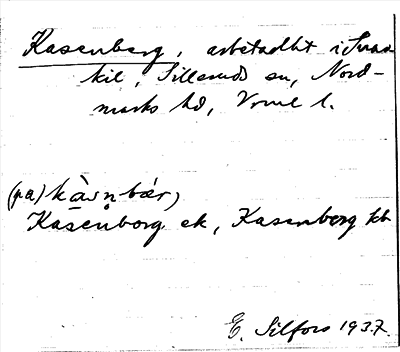 Kasenberg, arbetadht i Svan
kil, Silleruds sn, Nord-
marks hd, Vrml l.
(pa) kàsn̥bær,
Kasenborg ek, Kasenberg kb
E. Silfors 1937.